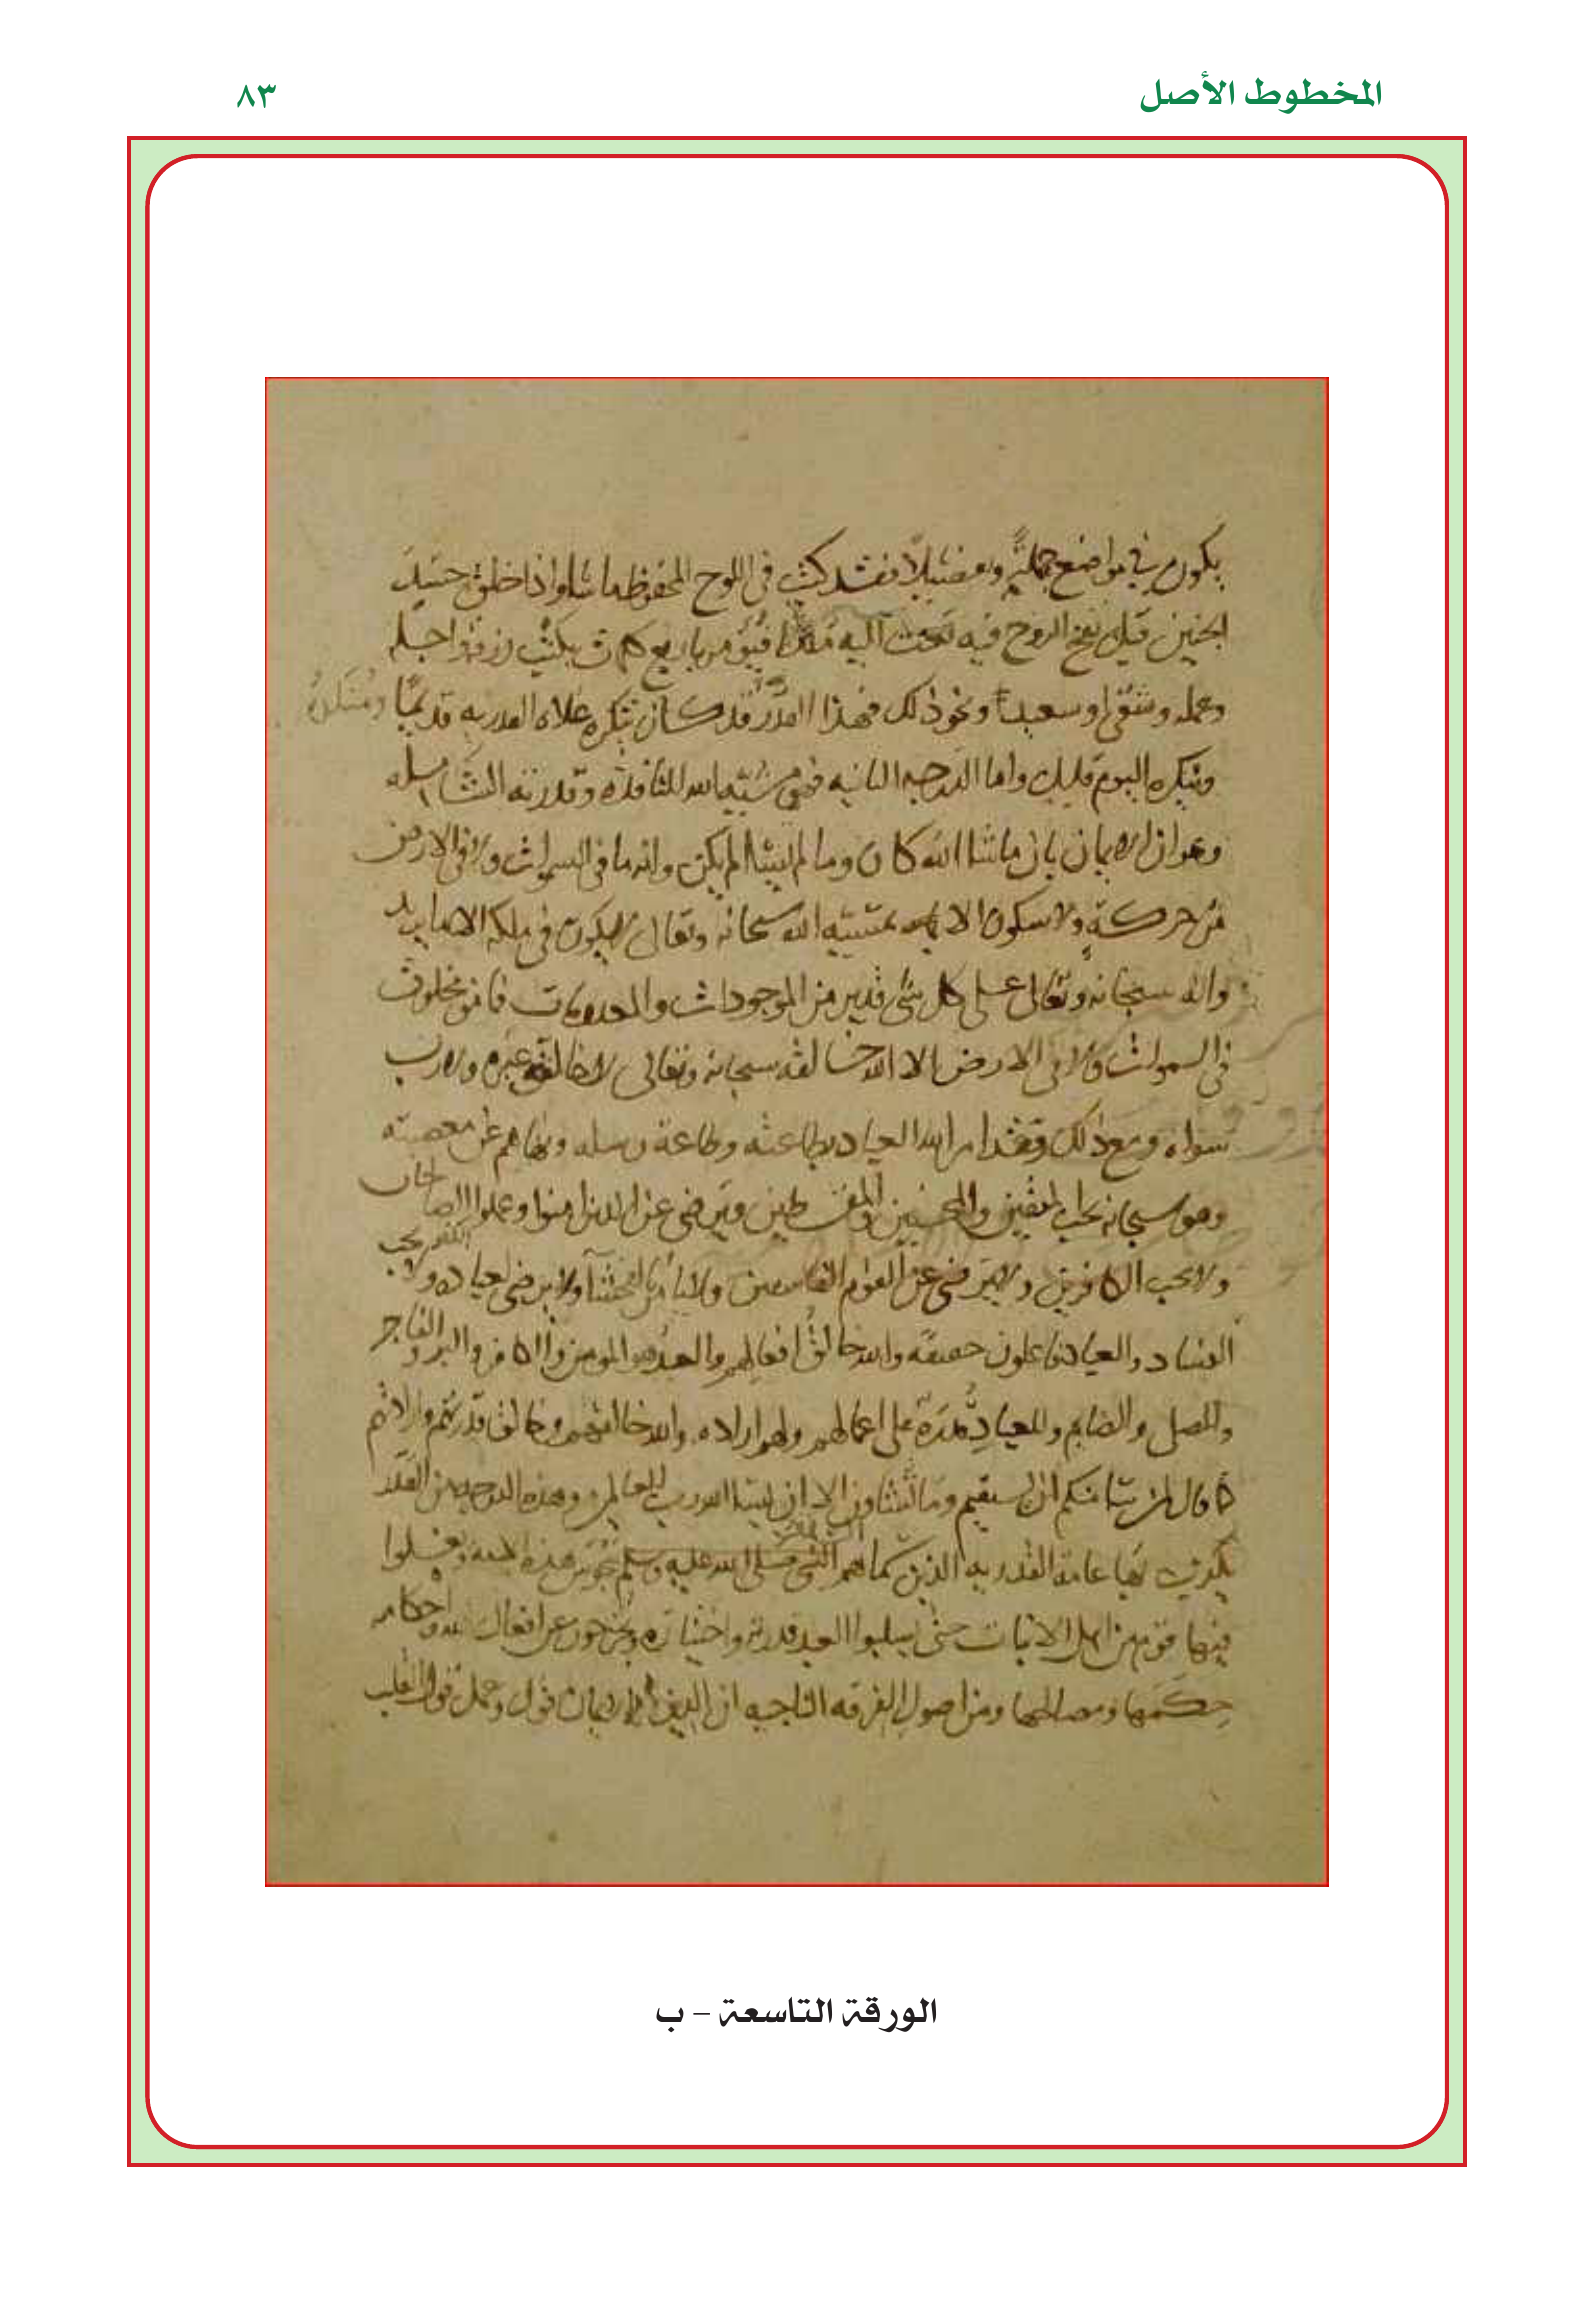 المخطوط الأصل
٨٣
يكون في مواضع جملةً وتفصيلاً فقد كتب في اللوح المحفوظ ما شا واذا خلق جسد
الجنين قبل نفخ الروح فيه بعث اليه ملكا فيؤمر باربع كلمات بكتب رزقه واجله
وعمله وشقى او سعيد ونحو ذلك فهذا القدر قد كان ينكره غلاه القدريه قديمًا
ومنكره اليوم قليل واما الدرجه الثانيه فهي مشيه الله النافذه وقدرته الشامله
وهو الايمان بان ما شا الله كان وما لم يشا لم يكن وانه ما في السموات ولا في الارض
من حركة ولا سكون الا بمشيه الله سبحانه وتعالى لا يكون في ملكه الا ما يريد
وانه سبحانه وتعالى على كل شى قدير من الموجودات والمعدومات فما من مخلوق
في السموات ولا في الارض الا الله خالقه سبحانه وتعالى لا خالق غيره ولا رب
سواه ومع ذلك فقد امر الله العباد بطاعته وطاعة رسله ونهاهم عن معصيته
وهو سبحانه يحب المتقين والمحسنين والمقسطين ويرضى عن الذين امنوا وعملوا الصالحات
ولا يحب الكافرين ولا يرضى عن القوم الفاسقين ولا يامر بالفحشآ ولا يرضى لعباده الكفر ولا يحب
الفساد والعباد فاعلون حقيقه والله خالق افعالهم والعبد هو المومن والكافر والبر والفاجر
والمصلي والصايم وللعباد قدرة على اعمالهم ولهم اراده والله خالقهم وخالق قدرتهم وارادتهم
كما قال لمن شا منكم ان يستقيم وما تشاون الا ان يشا الله رب العالمين وهذه الدرجه من القدر
يكذب بها عامة القدريه الذين سماهم النبي صلى الله عليه وسلم مجوس هذه الامه ويغلوا
فيها قوم من اهل الاثبات حتى يسلبوا العبد قدرته واختياره ويخرجون عن افعال الله واحكامه
حكمها ومصالحها ومن اصول الفرقه الناجيه ان الدين والايمان قول وعمل قول القلب
الورقة التاسعة – ب